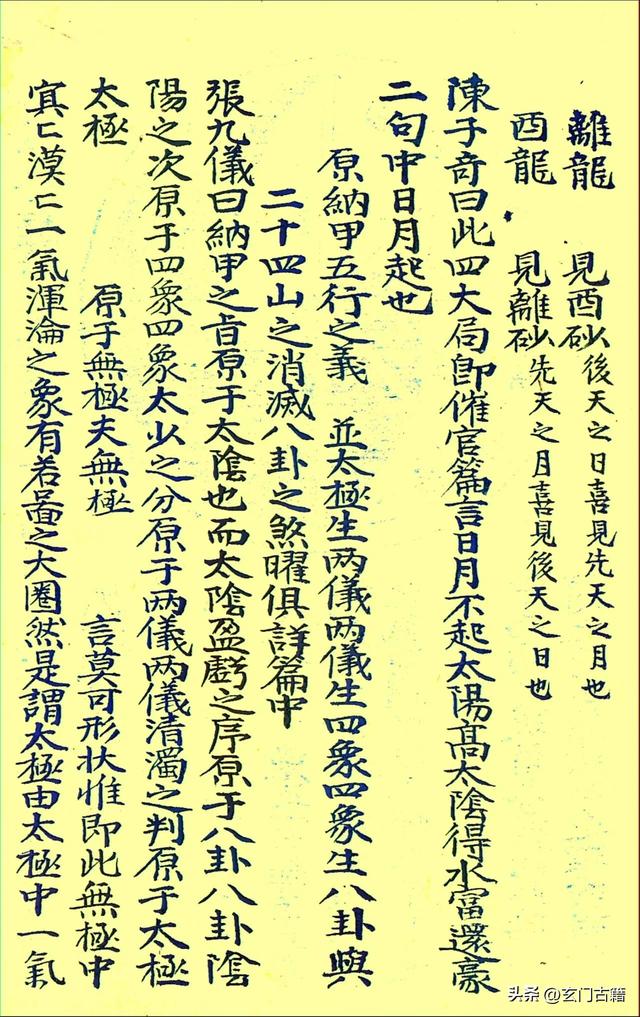 離龍 見酉砂 後天之日喜見先天之月也
酉龍 見離砂 先天之月喜見後天之日也
陳子奇曰此四大局即催官篇言日月不起太陽高太陰得水富還豪
二句中日月起也
原納甲五行之義 並太極生两儀两儀生四象四象生八卦與
二十四山之消滅八卦之煞曜俱詳篇中
張九儀曰納甲之旨原于太陰也而太陰盈虧之序原于八卦八卦陰
陽之次原于四象四象太少之分原于两儀两儀清濁之判原于太極
太極 原于無極夫無極 言莫可形状惟即此無極中
冥匕漠匕一氣渾淪之象有若畐之大圈然是謂太極由太極中一氣
头条 @玄门古籍